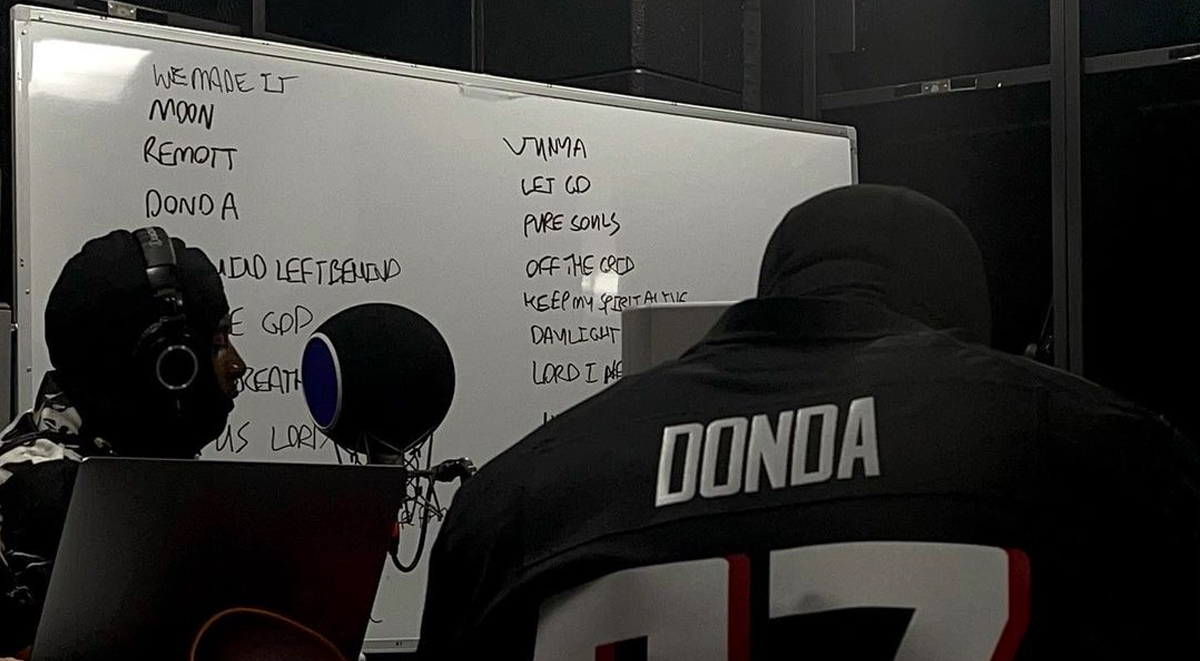 WE MADE IT
MOON
REMOTT
DONDA
LEFT BEHIND
GOD
US LORD
LET GO
PURE SOULS
OFF THE GRID
KEEP MY SPIRIT ALIVE
DAYLIGHT
LORD I
DONDA